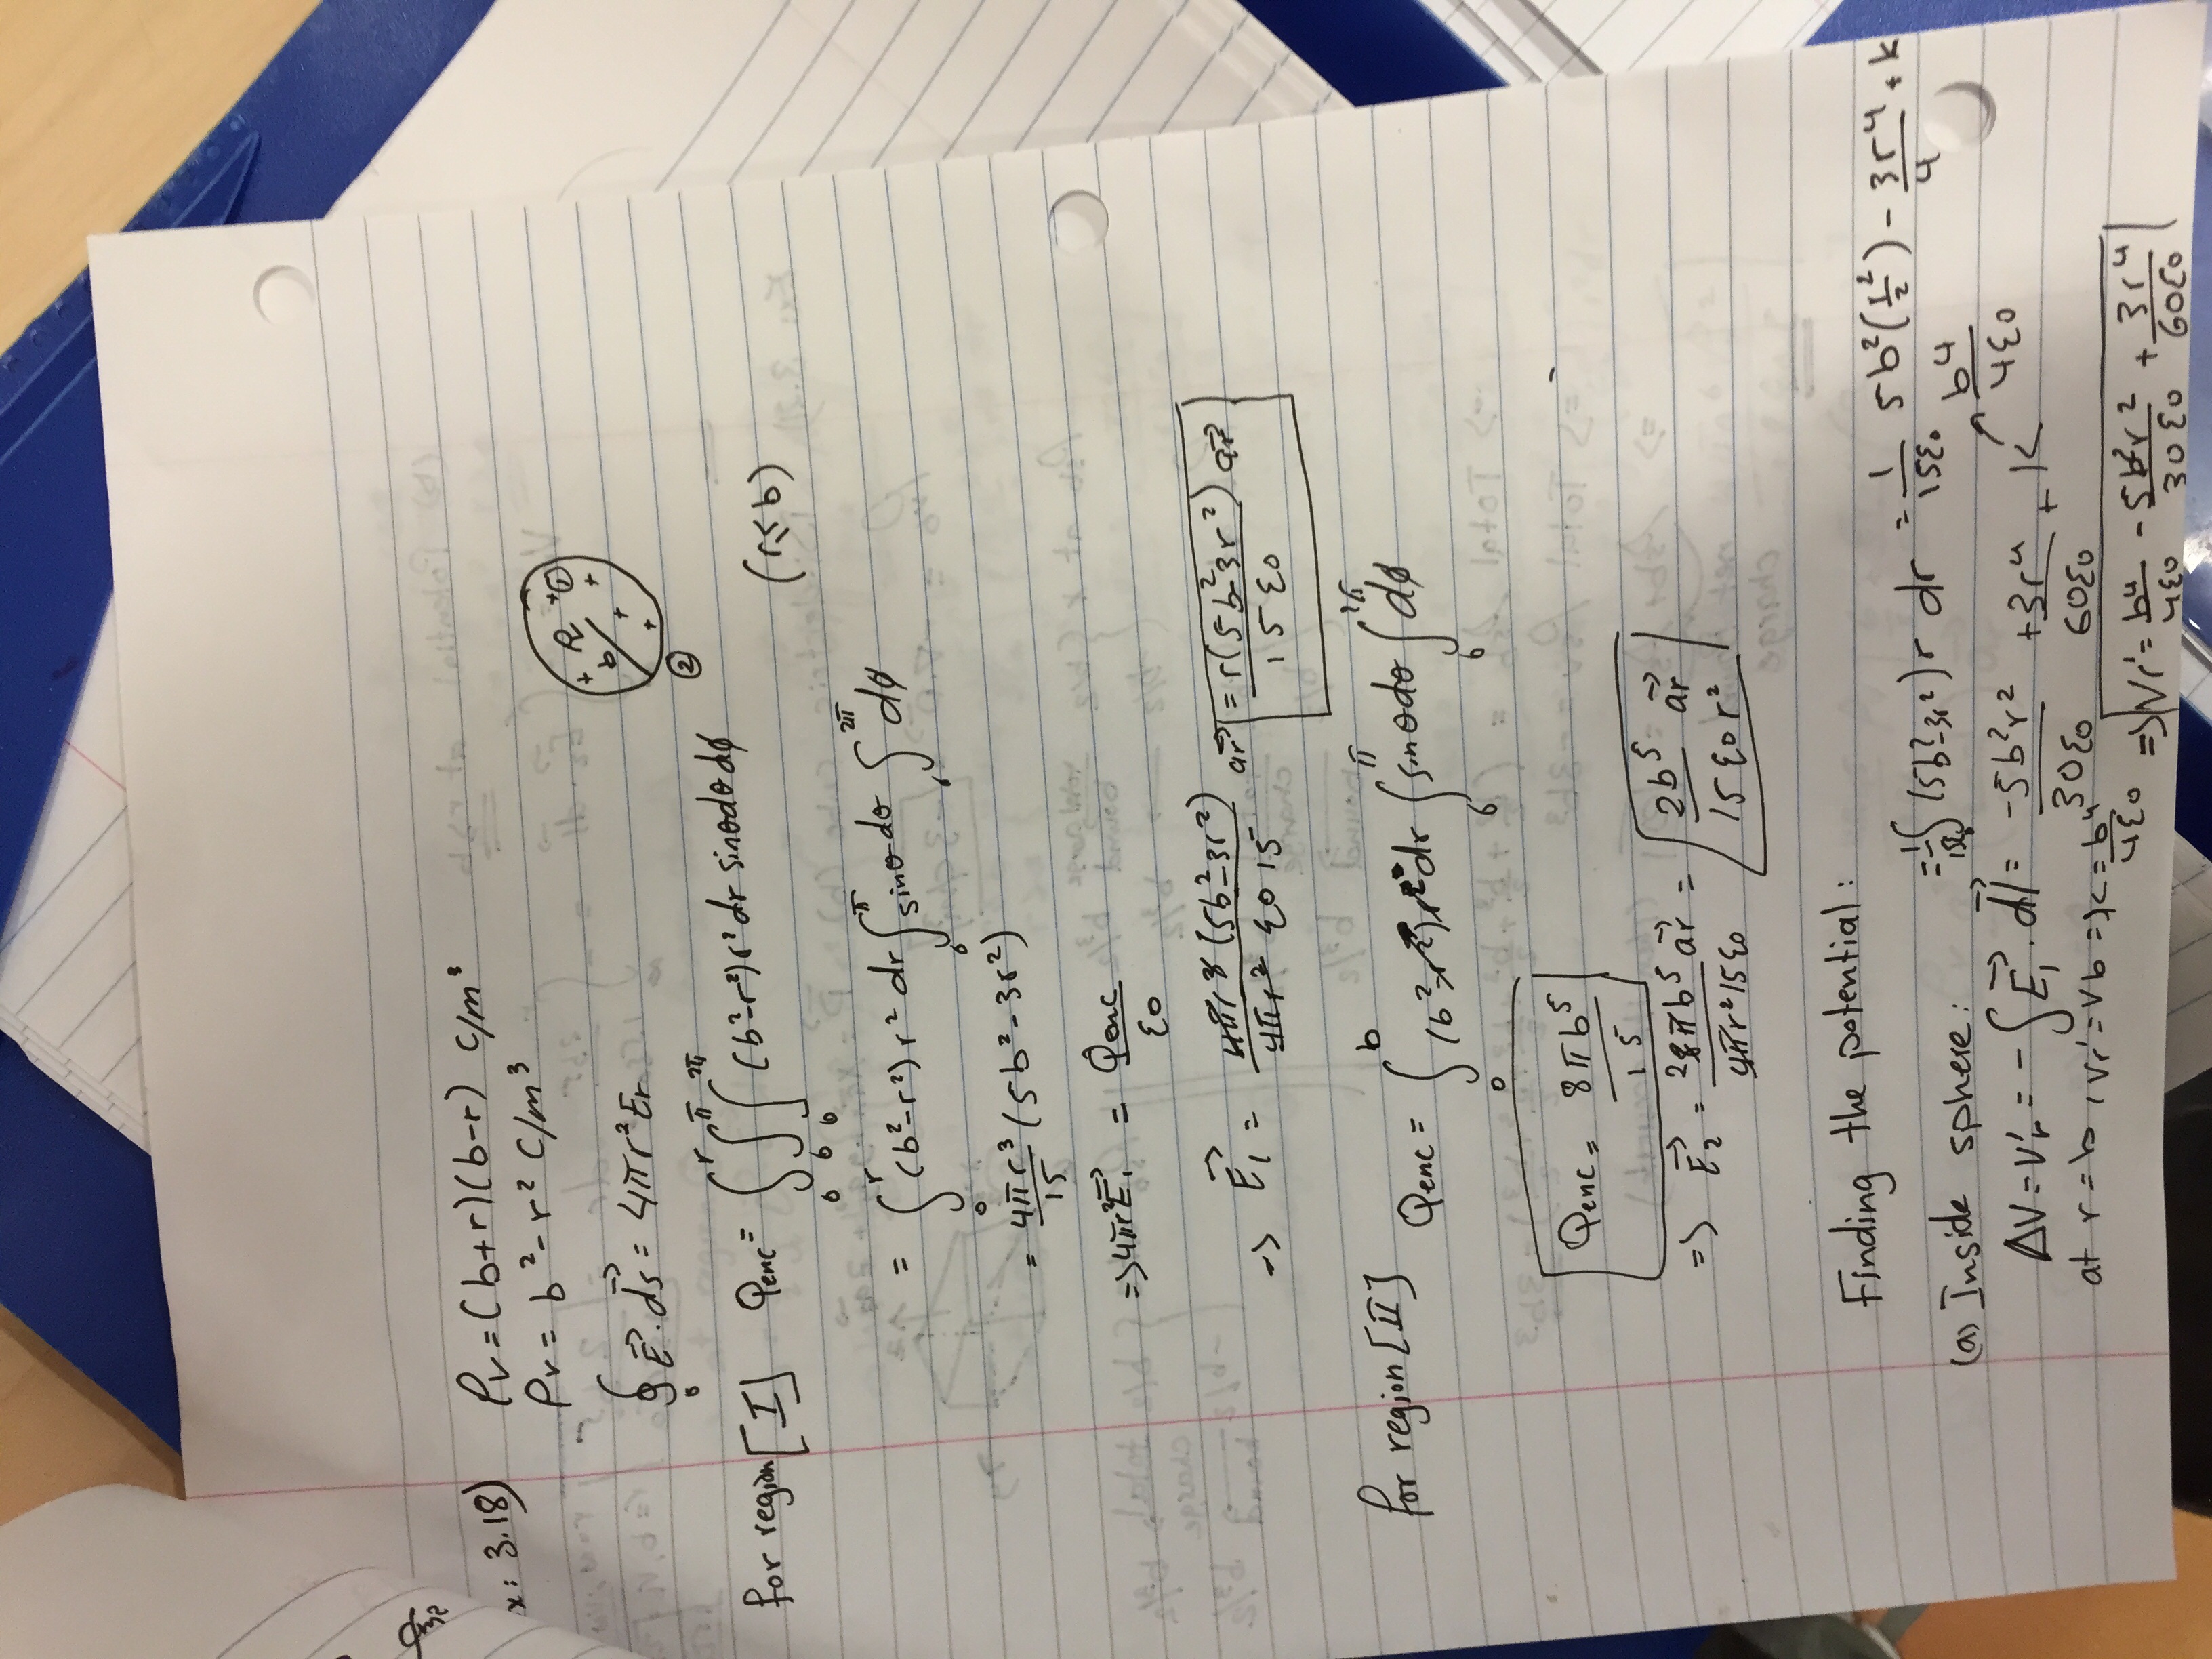 x: 3.18) ρv = (b+r)(b-r) C/m³
ρv = b² - r² C/m³
∮ E⃗ . ds⃗ = 4πr² Er
+ ρv + ① b + + + +
②
for region [I] Qenc = ∫₀^r ∫₀^π ∫₀^2π (b²-r²) r² dr sinθ dθ dϕ
= ∫₀^r (b²-r²) r² dr ∫₀^π sinθ dθ ∫^2π dϕ (r≤b)
= 4πr³/15 (5b² - 3r²)
=> 4πr² E⃗₁ = Qenc/ε0
=> E⃗₁ = 4πr³(5b²-3r²)/4πr² ε0 15 ar⃗ = r(5b²-3r²)/15ε0 ar⃗
for region [II] Qenc = ∫₀^b (b²-r²) r² dr ∫₀^π sinθ dθ ∫₀^2π dϕ
Qenc = 8πb⁵/15
=> E⃗₂ = 28πb⁵/4πr²15ε0 ar⃗ = 2b⁵/15ε0r² ar⃗
Finding the potential:
(a) Inside sphere: = 1/15ε0 ∫ (5b²-3r²) r dr = 1/15ε0 5b²(r²/2) - 3r⁴/4 + k
ΔV = V'r = - ∫ E⃗₁ . dl⃗ = -5b²r²/30ε0 + 3r⁴/60ε0 + K b⁴/4ε0
at r = b, Vr' = Vb => K = b⁴/4ε0 => Vr' = b⁴/4ε0 - 5b²r²/30ε0 + 3r⁴/60ε0